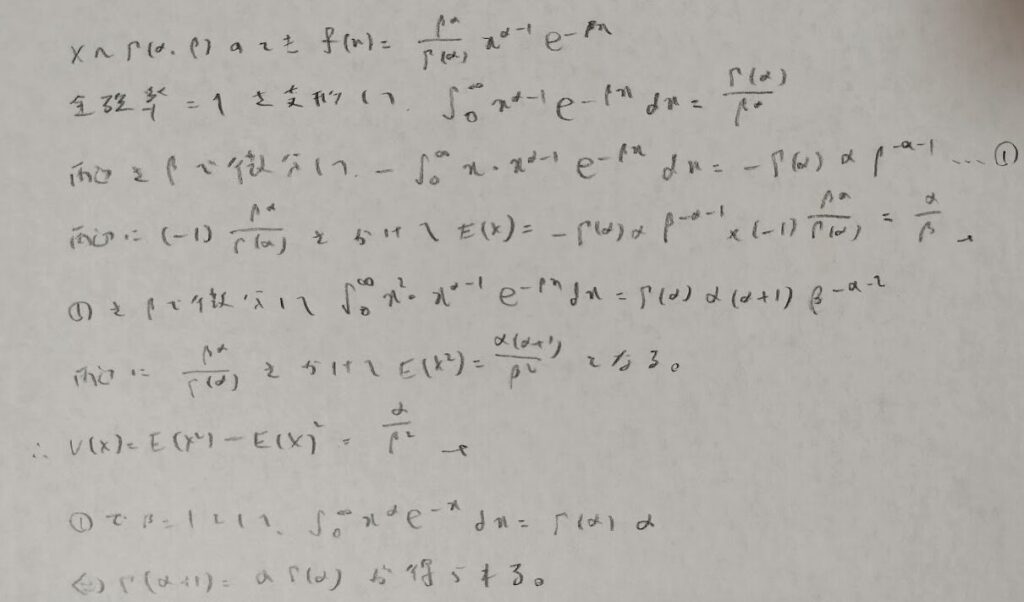 X ~ Γ(α, β) のとき f(x) = β^α/Γ(α) x^{α-1} e^{-βx}
全確率 = 1 を変形して、∫_0^∞ x^{α-1} e^{-βx} dx = Γ(α)/β^α
両辺を β で微分して、- ∫_0^∞ x・x^{α-1} e^{-βx} dx = - Γ(α) α β^{-α-1} … ①
両辺に (-1) β^α/Γ(α) をかけて E(X) = - Γ(α) α β^{-α-1} × (-1) β^α/Γ(α) = α/β
① を β で微分して ∫_0^∞ x^2・x^{α-1} e^{-βx} dx = Γ(α) α (α+1) β^{-α-2}
両辺に β^α/Γ(α) をかけて E(X^2) = α(α+1)/β^2 となる。
∴ V(X) = E(X^2) - E(X)^2 = α/β^2
① で β = 1 として、∫_0^∞ x^α e^{-x} dx = Γ(α) α
⇔ Γ(α+1) = α Γ(α) が得られる。